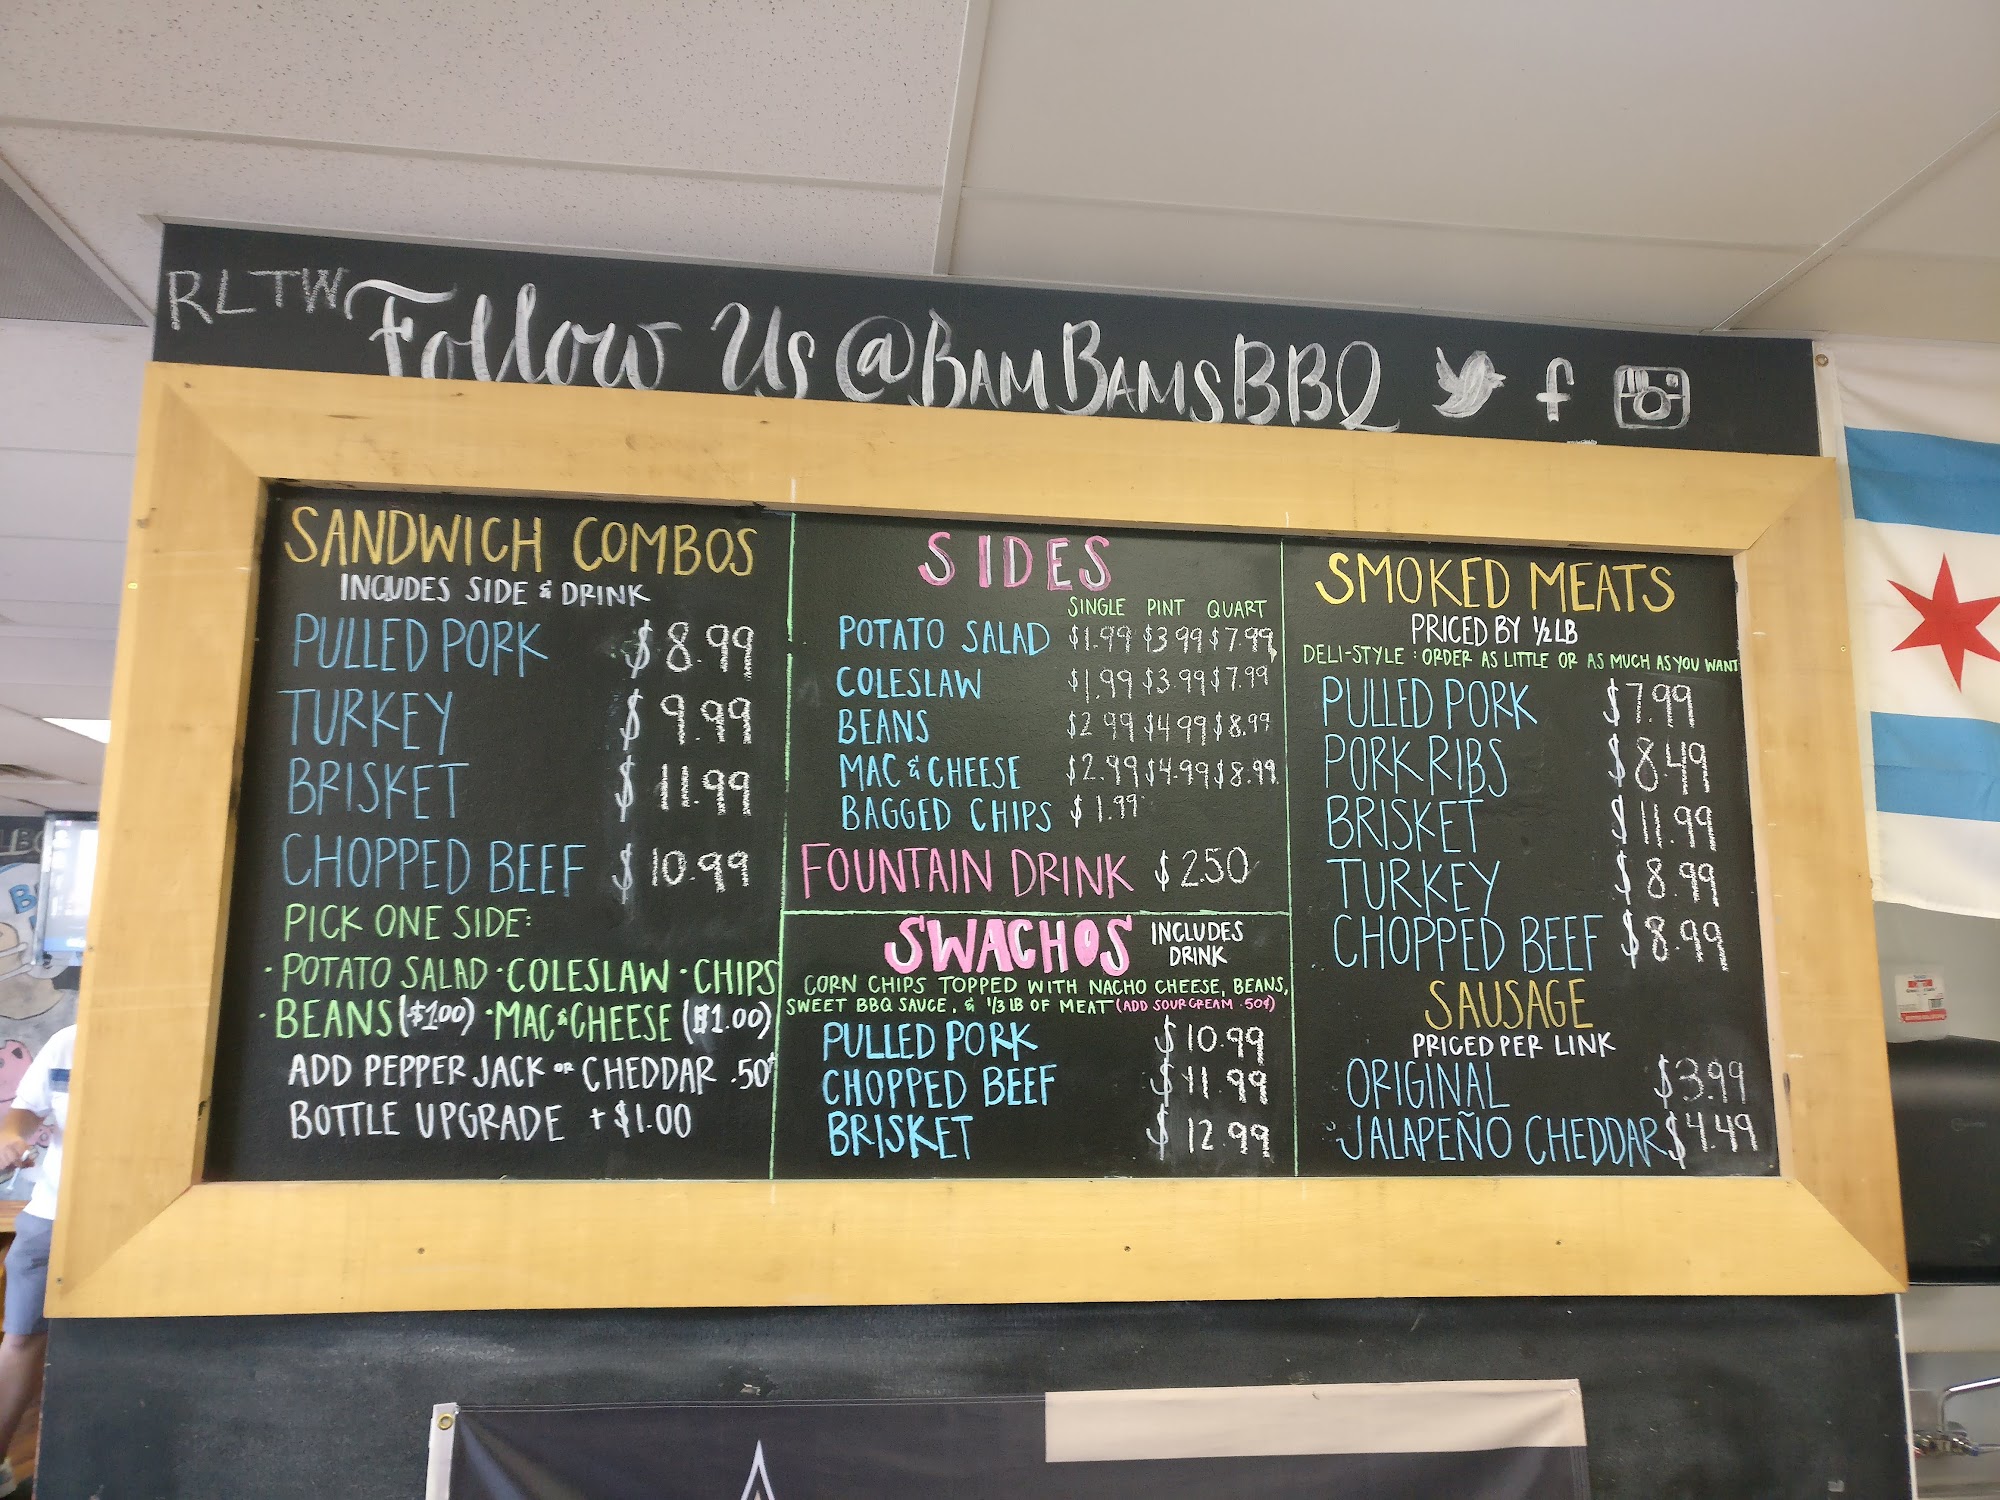 RLTW
Follow Us @BAMBAMSBBQ f
SANDWICH COMBOS
INCLUDES SIDE & DRINK
PULLED PORK $8.99
TURKEY $9.99
BRISKET $11.99
CHOPPED BEEF $10.99
PICK ONE SIDE:
· POTATO SALAD · COLESLAW · CHIPS
· BEANS ($1.00) · MAC & CHEESE ($1.00)
ADD PEPPER JACK OR CHEDDAR .50¢
BOTTLE UPGRADE +$1.00
SIDES
SINGLE PINT QUART
POTATO SALAD $1.99 $3.99 $7.99
COLESLAW $1.99 $3.99 $7.99
BEANS $2.99 $4.99 $8.99
MAC & CHEESE $2.99 $4.99 $8.99
BAGGED CHIPS $1.99
FOUNTAIN DRINK $2.50
SWACHOS INCLUDES DRINK
CORN CHIPS TOPPED WITH NACHO CHEESE, BEANS,
SWEET BBQ SAUCE, & 1/3 LB OF MEAT (ADD SOUR CREAM .50¢)
PULLED PORK $10.99
CHOPPED BEEF $11.99
BRISKET $12.99
SMOKED MEATS
PRICED BY 1/2 LB
DELI-STYLE : ORDER AS LITTLE OR AS MUCH AS YOU WANT
PULLED PORK $7.99
PORK RIBS $8.49
BRISKET $11.99
TURKEY $8.99
CHOPPED BEEF $8.99
SAUSAGE
PRICED PER LINK
ORIGINAL $3.99
JALAPEÑO CHEDDAR $4.49